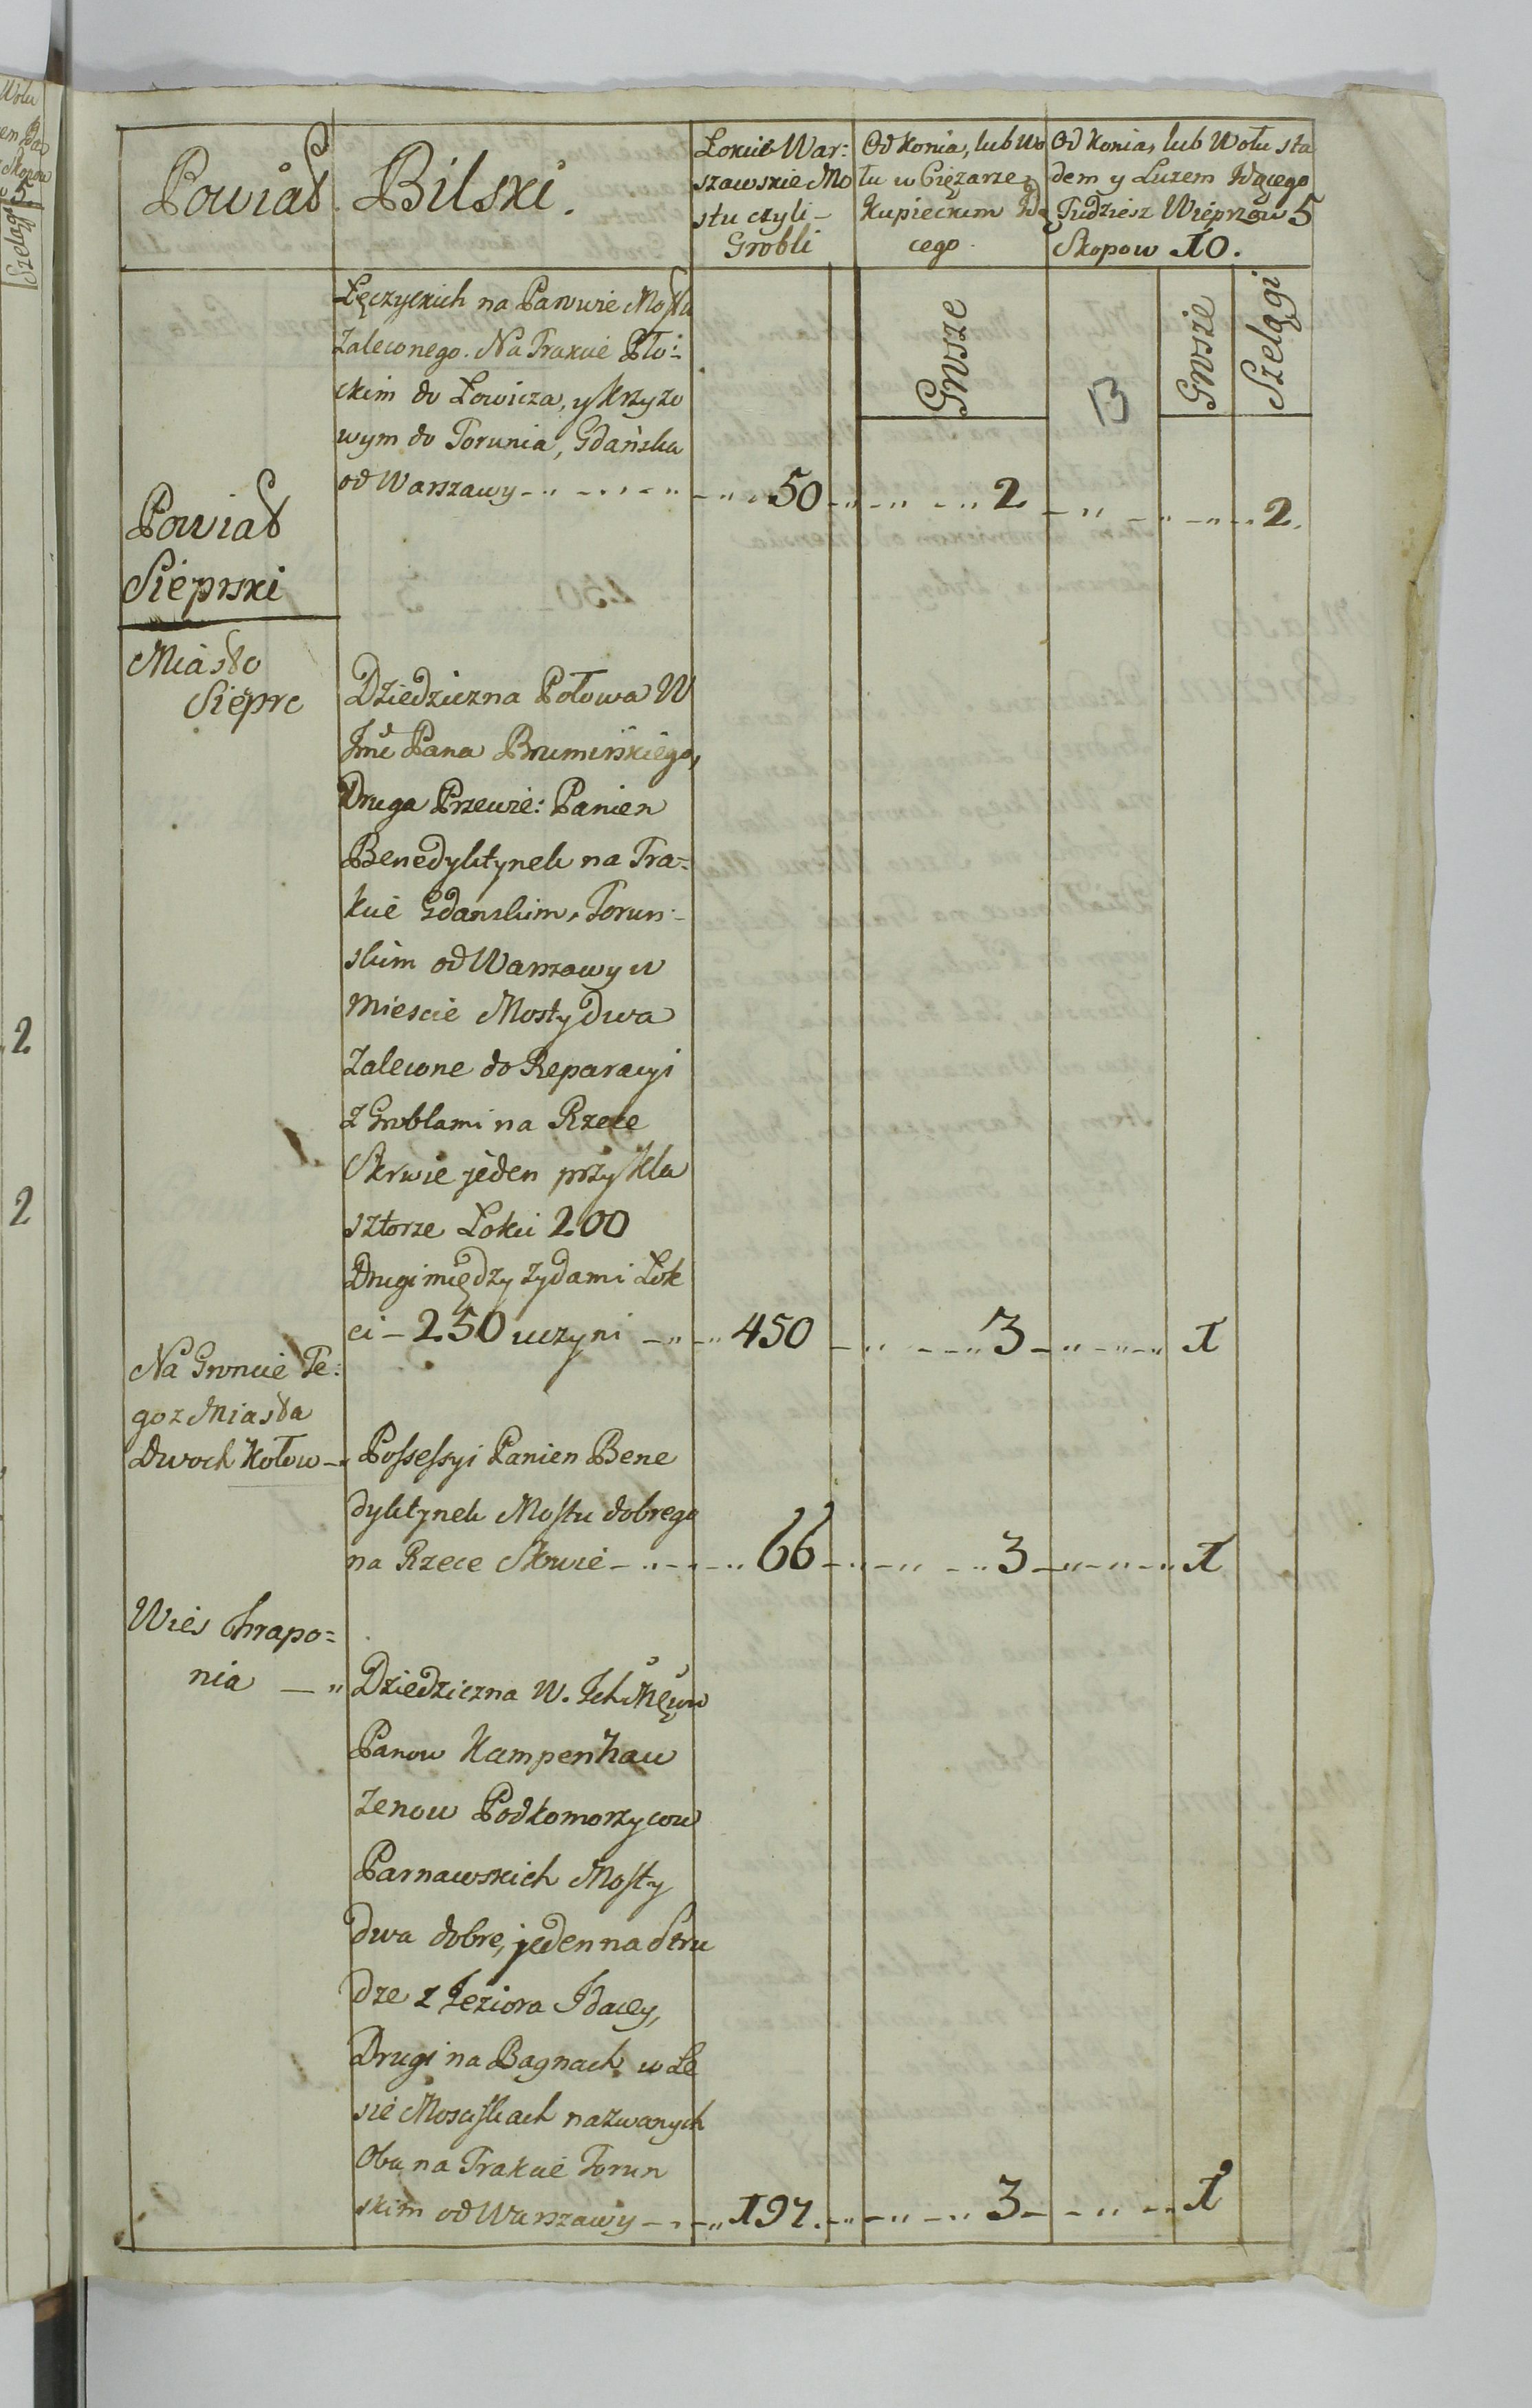 Powiat Bilski.
Łokcie War:
szawskie Mo
stu czyli –
Grobli
Od Konia, lub Wo
łu w Ciężarze
Kupieckim Idą
cego.
Od Konia, lub Wołu sta
dem y Luzem Idącego
Tudziesz Wieprzow 5
Skopow 10.
Grosze
13
Grosze
Szelągi
Łęczyckich na Parowie Mostu
Zaleconego. Na Trakcie Pło:
ckim do Łowicza, y Krzyzo
wym do Torunia, Gdańska
od Warszawy 50 2 2.
Powiat
Sieprski
Miasto
Sieprc
Dziedziczna Połowa W
Jmci Pana
Druga Przewie: Panien
Benedyktynek na Tra=
kcie Gdanskim, Torun:
skim od Warszawy w
Miescie Mosty Dwa
Zalecone do Reparacyi
z Groblami na Rzece
Skrwie jeden przy Kla
sztorze Łokci 200
Drugi między Zydami Łok
ci – 250 uczyni 450 3 1
Na Groncie Te:
goz Miasta
Dwoch Kołow
Possessyi Panien Bene
dyktynek Mostu dobrego
na Rzece Skrwie 66 3 1
Wies Chrapo=
nia
Dziedziczna W. Ich
Panow Kampenhau
zenow Podkomorzycow
Parnawskich Mosty
Dwa dobre, jeden na Stru
dze z Jeziora Idacey,
Drugi na Bagnach w Le
sie Moscískach nazwanych
Obu na Trakcie Torun
skim od Warszawy 197. 3 1
Wołu
Skopow
5.
Szelągi
2
2